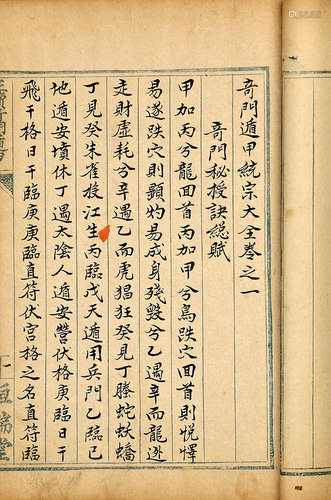 奇門遁甲統宗大全卷之一
奇門秘授訣總賦
甲加丙兮龍回首丙加甲兮鳥跌穴回首則悅懌
易遂跌穴則顯灼易成身殘毀兮乙遇辛而龍迯
走財虛耗兮辛遇乙而虎猖狂癸見丁螣蛇妖蟜
丁見癸朱雀投江生丙臨戊天遁用兵開乙臨己
地遁安墳休丁遇太陰人遁安營伏格庚臨日干
飛干格日干臨庚庚臨直符伏宮格之名直符臨
瑞堂